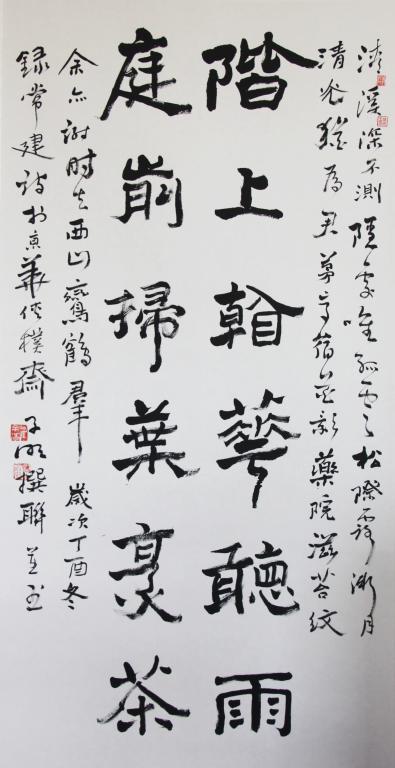 清溪深不測隱處唯孤雲松際露微月
清光猶為君茅亭宿花影藥院滋苔紋
階上看華聽雨
庭前掃葉烹茶
余亦謝時去西山鸞鶴羣 歲次丁酉冬
錄常建詩於京華俠樸齋 子撰聯並書